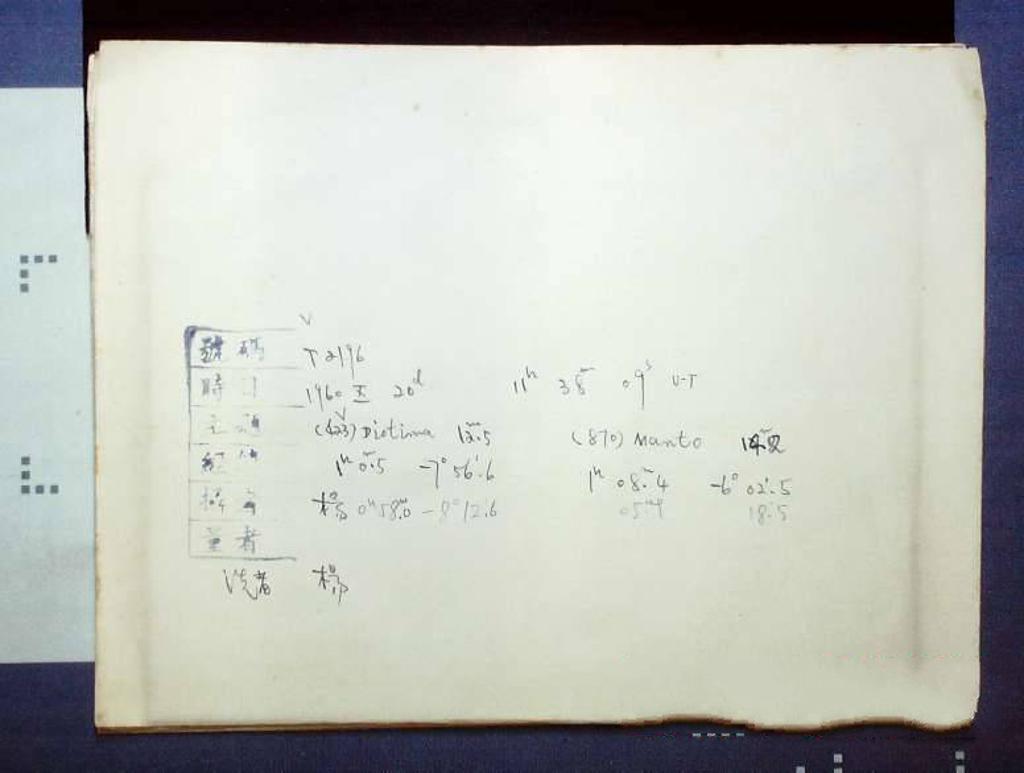 號碼 T 2196
1960 20ᵈ 11ʰ 38ᵐ 09ˢ U-T
(423) Diotima 12ᵐ.5 (870) Manto
1ʰ 0ᵐ.5 -7° 56'.6 1ʰ 08ᵐ.4 -6° 02'.5
楊 0ʰ 58ᵐ.0 -8° 12'.6 18.5
量者
洗者 楊